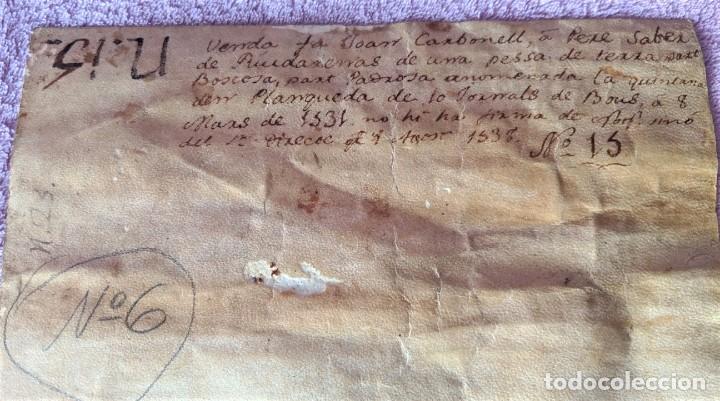 N.15
Venda fa Joan Carbonell, a Pere Saber
de Riudarenas de una pessa de terra part
Boscosa, part Padrosa anomenada la quintana
den Planqueda de 10 Jornals de Bous, a 8
Mars de 1531. no hi ha firma de sino
del Sr. Directe
Nº 15
N. 23.
Nº 6
todocoleccion
todocoleccion.net